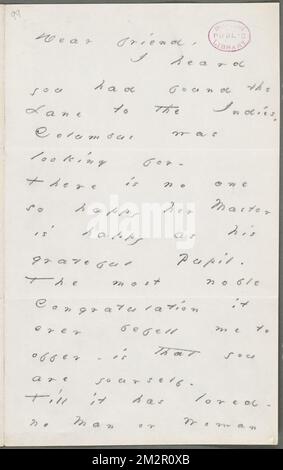 99
BOSTON
PUBLIC
LIBRARY
Dear friend,
I heard
you had found the
Lane to the Indies,
Columbus was
looking for -
There is no one
so happy her Master
is happy as his
grateful Pupil.
The most noble
Congratulation it
ever befell me to
offer - is that you
are yourself.
Till it has loved -
no man or woman
alamy
Image ID: 2M2R0XB
www.alamy.com